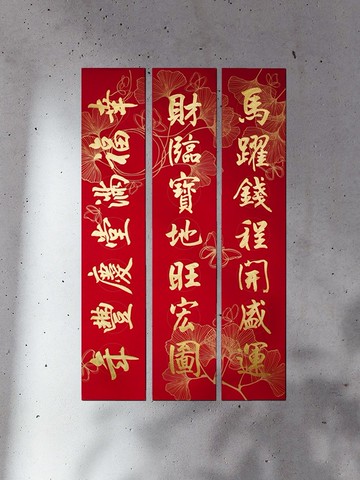 馬躍錢程開盛運
財臨寶地旺宏圖
幸福滿堂慶豐年